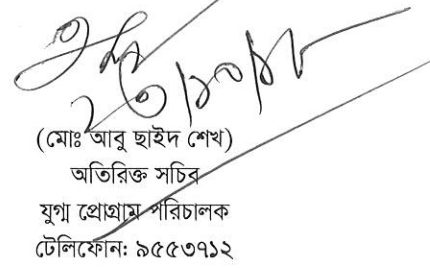 ২৩/১০/১৮
(মোঃ আবু ছাইদ শেখ)
অতিরিক্ত সচিব
যুগ্ম প্রোগ্রাম পরিচালক
টেলিফোন: ৯৫৫৩৭১২